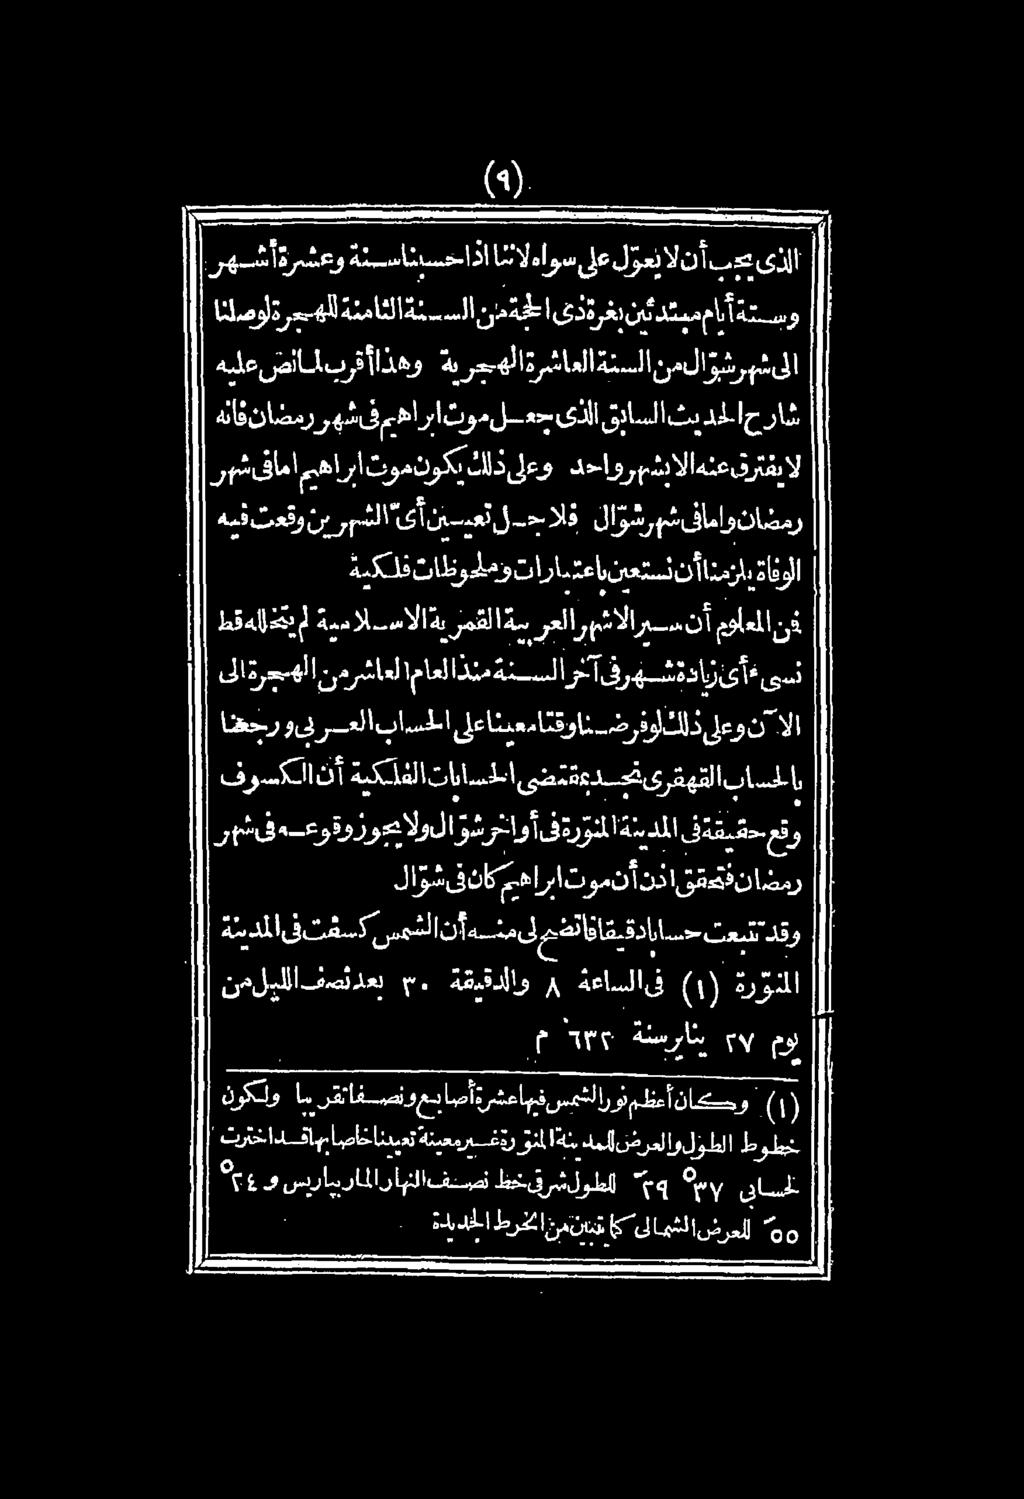 (٩)
الذى يجب أن لا يعوّل على سواه لاننا اذا حسبنا سنة وعشرة أشهر
وستة أيام مبتدئين بغرة ذى الحجة من السنة الثامنة للهجرة لوصلنا
الى شهر شوّال من السنة العاشرة الهجرية وهذا أقرب لما نص عليه
شارح الحديث السابق الذى جعل موت ابراهيم فى شهر رمضان فانه
لا يفترق عنه الا بشهر واحد وعلى ذلك يكون موت ابراهيم اما فى شهر
رمضان واما فى شهر شوّال فلاجل تعيين أىّ الشهرين وقعت فيه
الوفاة يلزمنا أن نستعين باعتبارات وملحوظات فلكية
فمن المعلوم أن سير الاشهر العربية القمرية الاسلامية لم يتخلله قط
نسىء أى زيادة شهر فى آخر السنة منذ العام العاشر من الهجرة الى
الآن وعلى ذلك لو فرضنا وقتا معينا على الحساب العربى ورجعنا
بالحساب القهقرى نجد بمقتضى الحسابات الفلكية أن الكسوف
وقع حقيقة فى المدينة المنوّرة فى أواخر شوّال ولا يجوز وقوعه فى شهر
رمضان فتحقق اذن أن موت ابراهيم كان فى شوّال
وقد تتبعت حسابا دقيقا فاتضح لى منه أن الشمس كسفت فى المدينة
المنوّرة (١) فى الساعة ٨ والدقيقة ٣٠ بعد نصف الليل من
يوم ٢٧ يناير سنة ٦٣٢ م
(١) وكان أعظم نور الشمس فيها عشرة أصابع ونصفا تقريبا ولكون
خطوط الطول والعرض للمدينة المنوّرة غير معينة تعيينا خاصا بها قد اخترت
لحسابى ٣٧° ٢٩َ للطول شرقى خط نصف النهار المار بباريس و ٢٤°
٥٥َ للعرض الشمالى كما تبين من الخرط الجديدة